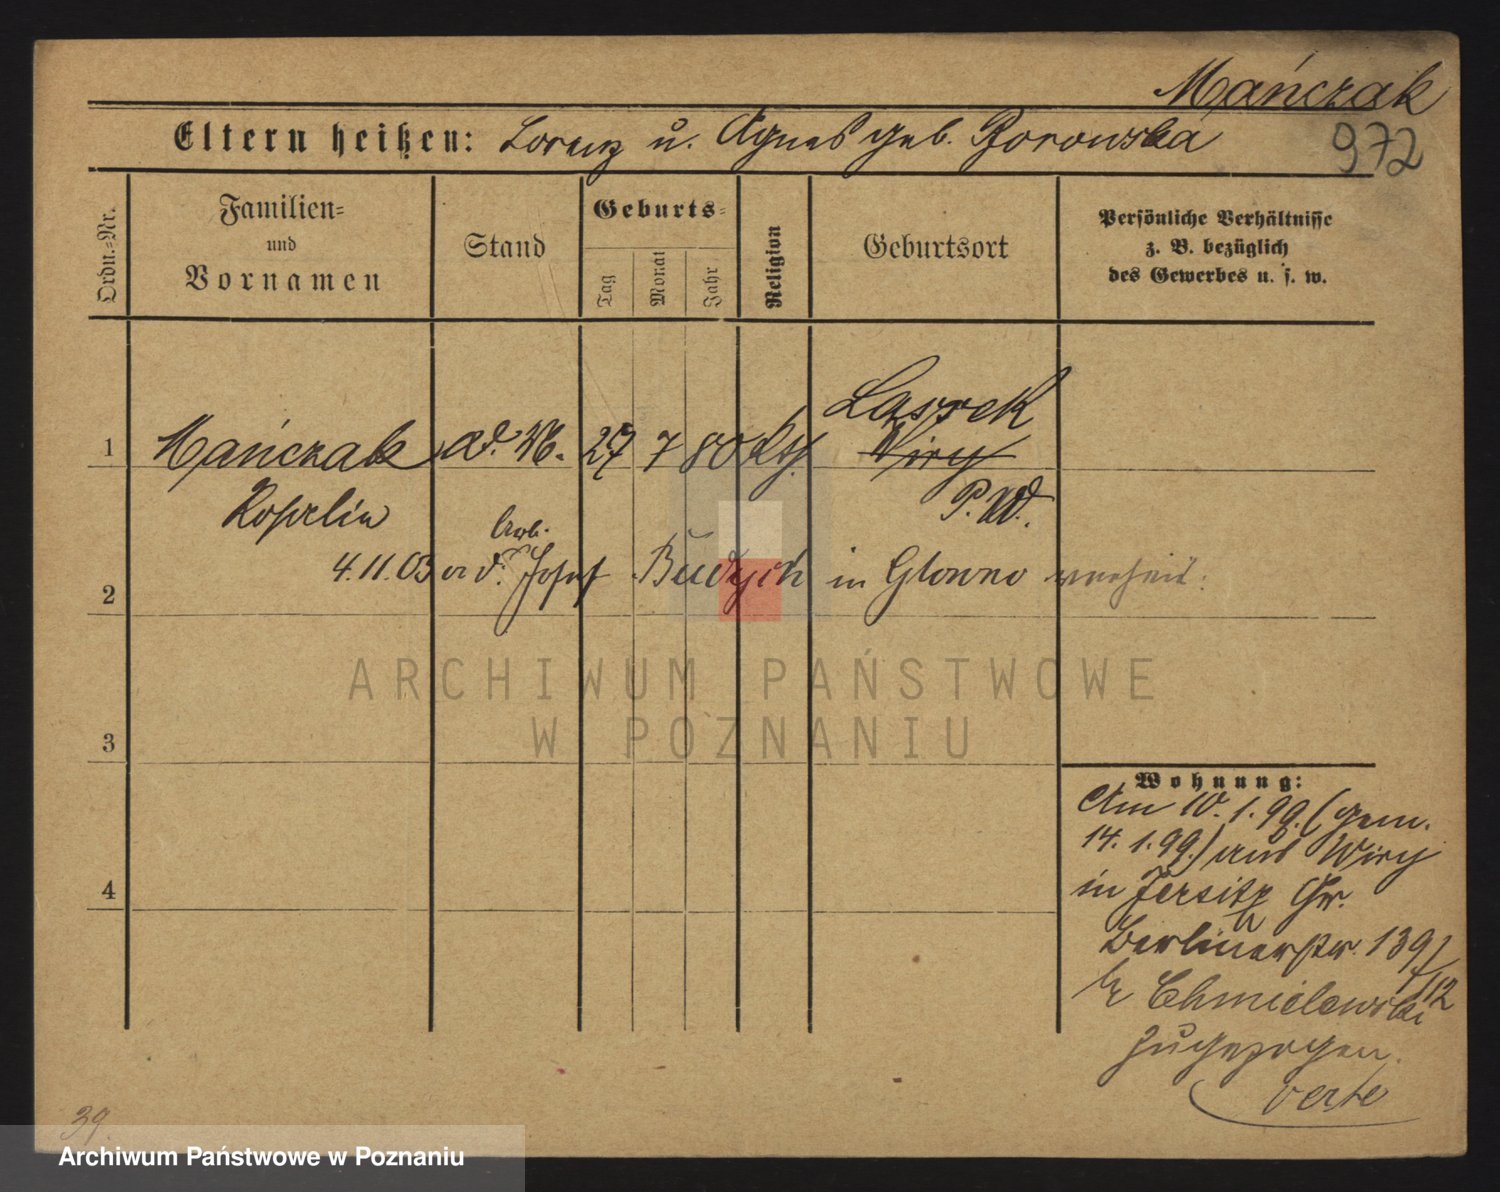 Mańczak
972
Eltern heißen: Lorenz u. Agnes geb. Borowska
Ordn.-Nr.
Familien-
und
Vornamen
Stand
Geburts-
Tag
Monat
Jahr
Religion
Geburtsort
Persönliche Verhältnisse
z. B. bezüglich
des Gewerbes u. s. w.
Lassek
1 Mańczak 27 7 80 Kth. Wiry
P. W.
Rosalie
Arb.
4.11.03 Josef Budych in Glowno verheir.
2
3
4
Wohnung:
Am 10.1.99. (gem.
14.1.99.) aus Wiry
in Jersitz Gr.
Berlinerstr. 139/
12
b/ Chmielewski
zugezogen.
verte
39.
ARCHIWUM PAŃSTWOWE
W POZNANIU
Archiwum Państwowe w Poznaniu